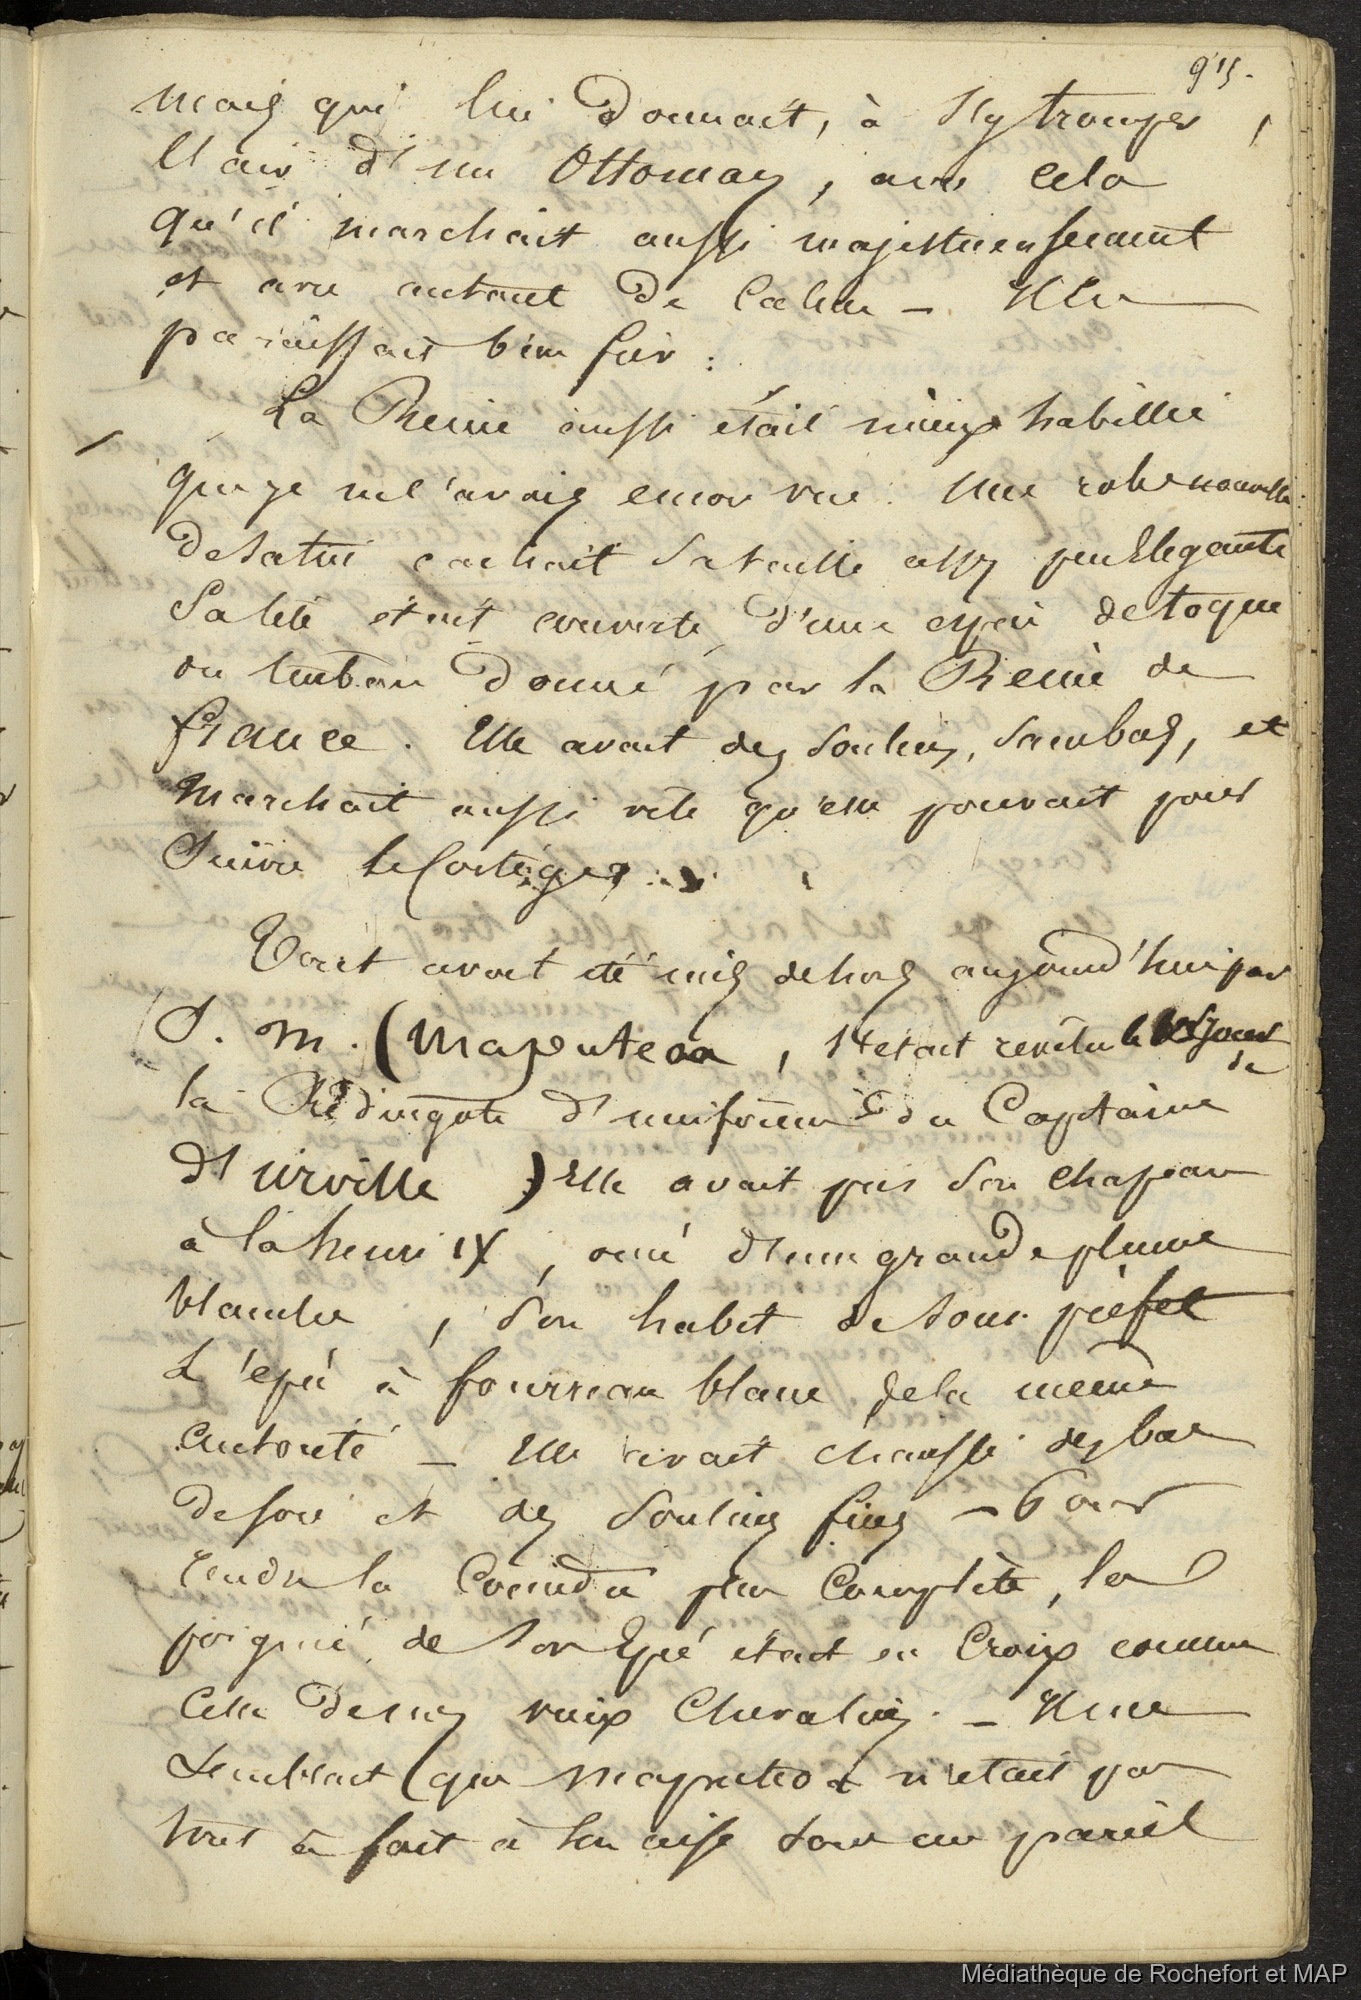 915.
mais qui lui donnait, à s'y tromper,
l'air d'un Ottoman, avec cela
qu'il marchait aussi majestueusement
et avec autant de calme – Il
paraissait bien fier.
La Reine aussi était mieux habillée
que je ne l'avais encor vue. Une robe nouvelle
de satin cachait sa taille assez peu élégante
Sa tête était couverte d'une espèce de toque
ou turban donné par la Reine de
france. Elle avait des souliers, sans bas, et
marchait aussi vite qu'elle pouvait pour
suivre le Cortège.
Tout avait été mis dehors aujourd'hui par
S. M. (Mapouteoa, était revêtu de
la Redingote d'uniforme du Capitaine
d'urville) Elle avait pris son chapeau
à la henri IV, orné d'une grande plume
blanche, son habit de sous préfet
L'épée à fourreau blanc de la même
autorité – Elle avait chaussé des bas
de soie et des souliers fins – Pour
rendre la plus complète, la
poignée de son Epée était en Croix comme
celle de nos vieux Chevaliers. – Il me
semblait que Mapouteoa n'était pas
tout à fait à son aise sous un pareil
Médiathèque de Rochefort et MAP